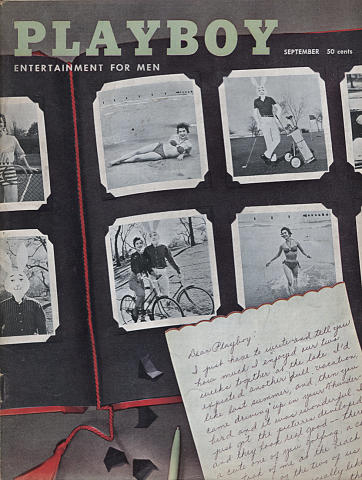 PLAYBOY
ENTERTAINMENT FOR MEN
SEPTEMBER 50 cents
Dear Playboy:
I just have to write and tell you
how much I enjoyed our two
weeks together at the lake. I'd
expected another dull vacation
like last summer, and then you
came driving up in your
and it was wonderful. I
just got the pictures
and they look real good
a cute one of you
of me at the beach
the two of us